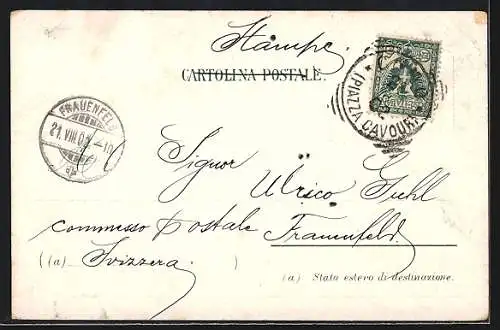 Stampe
CARTOLINA POSTALE.
(PIAZZA CAVOUR)
FRAUENFELD
21. VIII. 03. -10
Signor Ulrico Guhl
commesso Postale
Frauenfeld.
(a) Svizzera )
(a) Stato estero di destinazione.